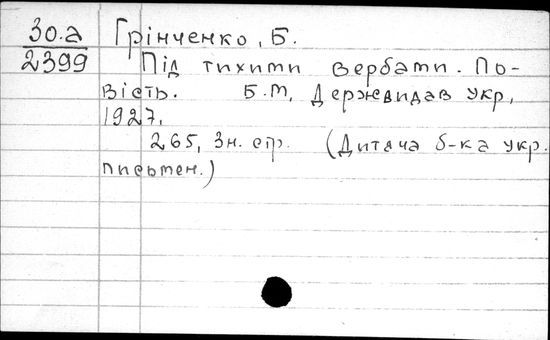 30.а Грінченко, Б.
2399 Під тихими вербами. По-
вість. Б.М, Держвидав укр,
1927.
265, 3н. стр. (Дитяча б-ка укр.
письмен.)